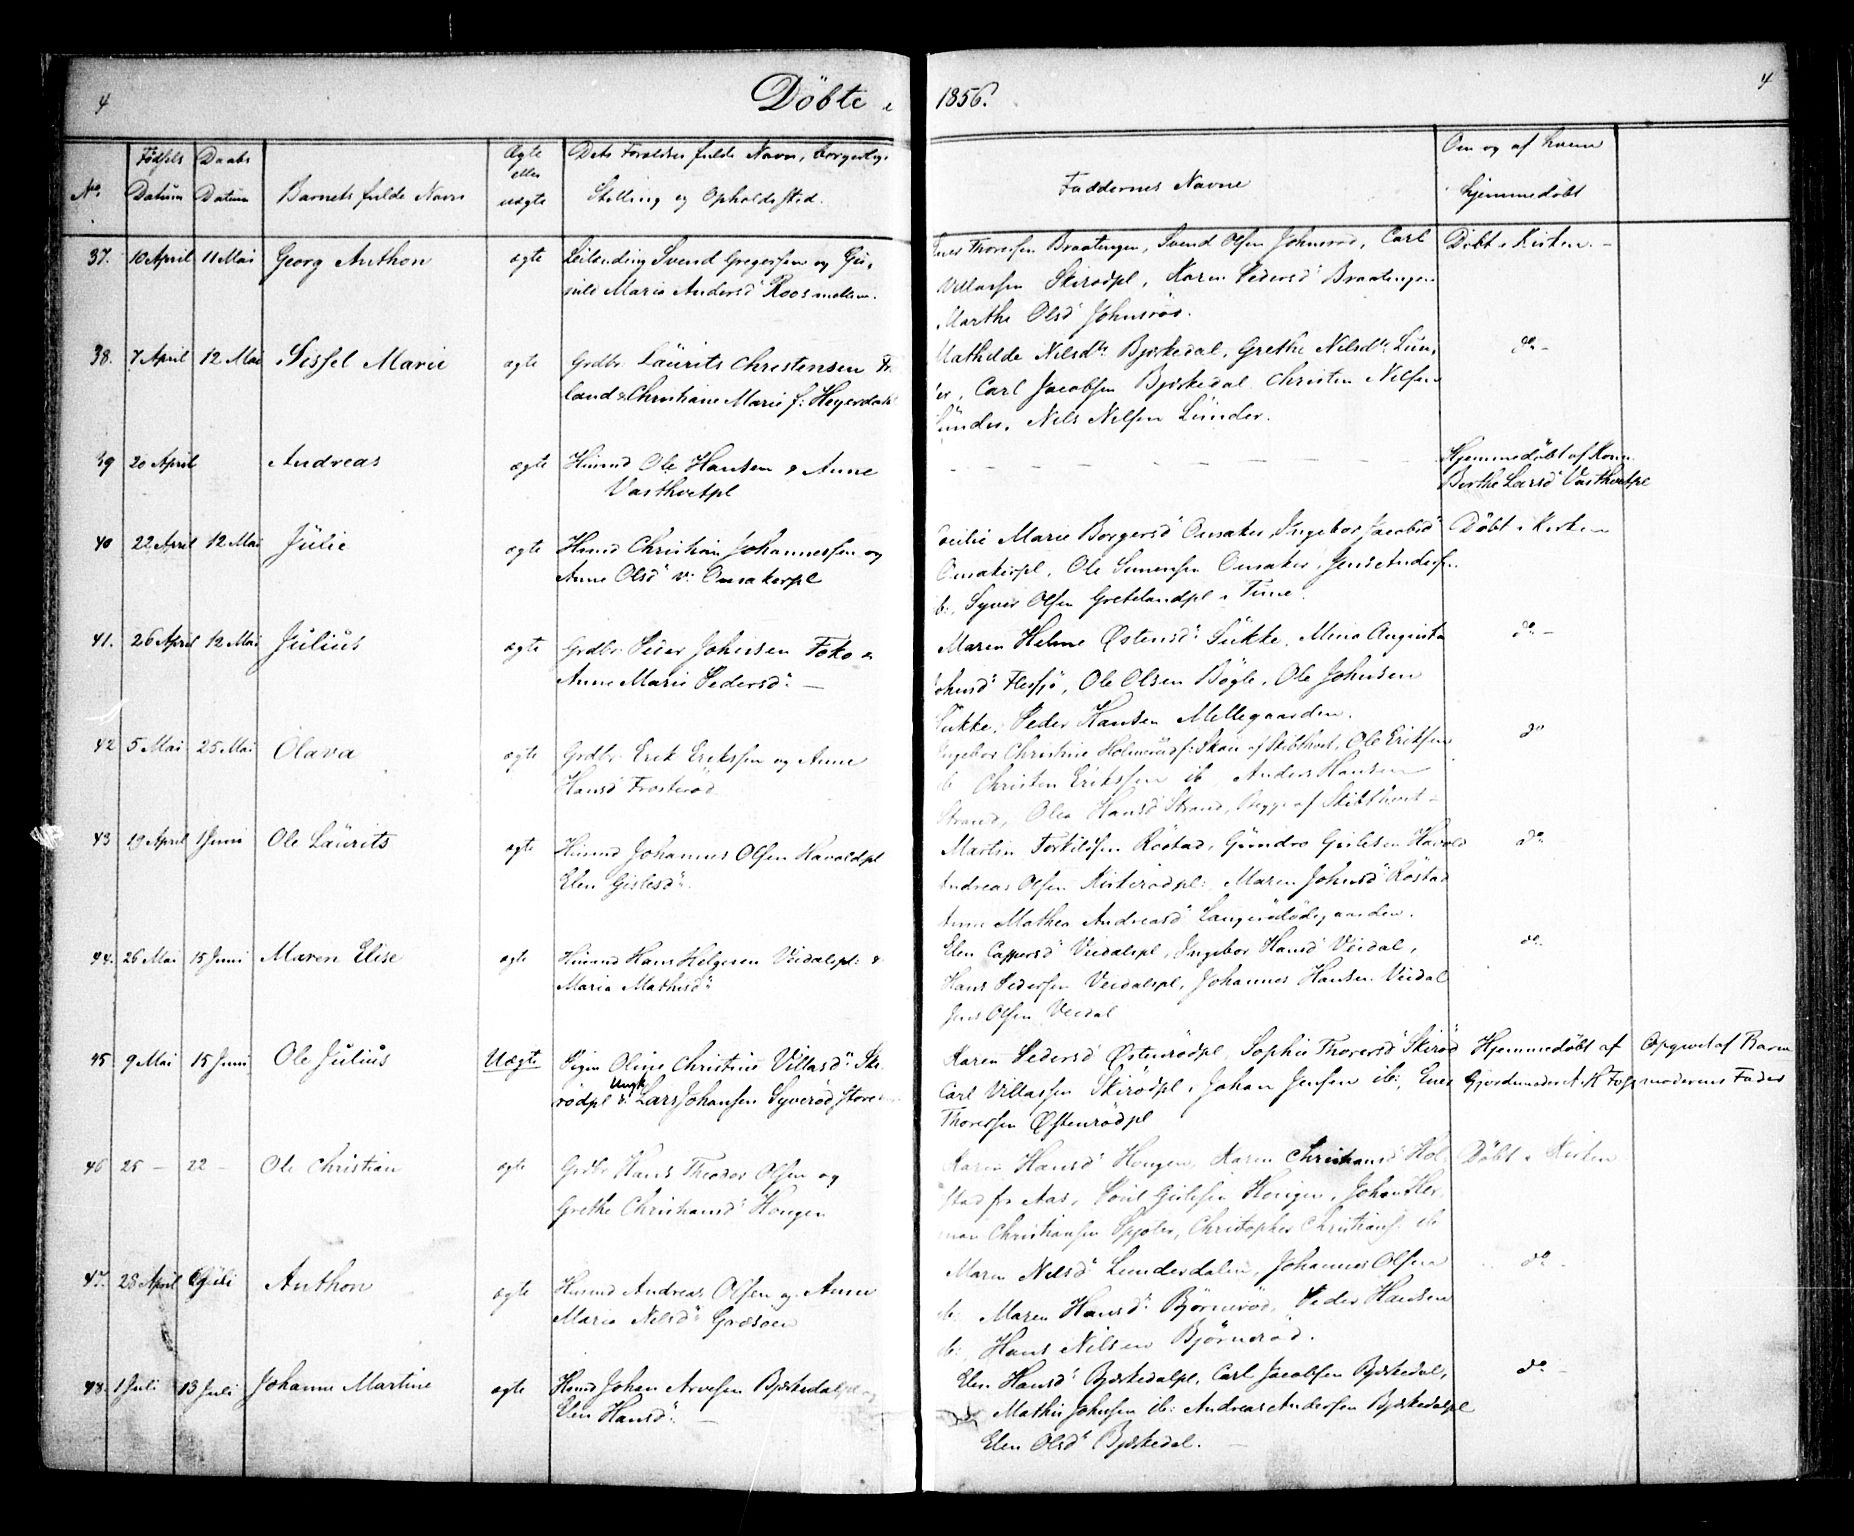 4
Döbte i 1856.
4
No.
Fødsels Datum
Daabs Datum
Barnets fulde Navn
Ægte eller uægte
Dets Forældres fulde Navn, borgerlige
Stilling og Opholdssted.
Faddernes Navne
Om og af hvem
hjemmedöbt
37. 10 April 11 Mai Georg Anthon ægte Leilending Svend Gregersen og Gu-
nild Maria Andersd Roosmollen.
Thoresen Braatengen, Svend Olsen Johnsrød, Carl
Villassen Skirödpl, Karen Pedersd Braatengen
Marthe Olsd Johnsröd.
Döbt i Kirken. -
38. 7 April 12 Mai Sissel Marie ægte Grdbr. Laurits Christensen
land & Christiane Marie f: Heyerdahl
Mathilde Nilsdtr Bjørkedal, Grethe Nilsdtr Lun-
Carl Jacobsen Bjørkedal, Christen Nilsen
Lunder, Nils Nilsen Lunder.
do -
39 20 April Andreas ægte Husmd Ole Hansen & Anne
Vasthvetpl
- - - - - - -
Hjemmedöbt af Kone
Berthe Larsd Vasthvetpl
40 22 April 12 Mai Julie ægte Husmd Christian Johannessen og
Anne Olsd v: Omsakerpl
Marie Borgersd Omsaker, Ingebor Jacobsd
Omsakerpl, Ole Simensen Omsaker, Jens Andersen
ib:, Syver Olsen Gretelandpl i Tune.
Döbt i Kirken
41. 26 April 12 Mai Julius ægte Grdbr. Johnsen Foko &
Anne Marie Pedersd. -
Maren Helene Østensd Sukke, Mina Augusta
Johnsd Flesjø, Ole Olsen Bögle, Ole Johnsen
Sukke, Peder Hansen Mellegaarden.
do -
42 5 Mai 25 Mai Olava ægte Grdbr. Erik Eriksen og Anne
Hansd Frosteröd
Ingebor Christine f: Skau af Stibthvet, Ole Eriksen
ib Christen Eriksen ib, Anders Hansen
Strand, Olea Hansd Strand, af Stibthvet -
do
43 19 April 1 Juni Ole Laurits ægte Husmd Johannes Olsen Havoldpl
Elen Gislesd.
Martin Torkildsen Röstad, Gundro Gislesen Havold
Andreas Olsen Kirkerödpl: Maren Johnsd Röstad
Anne Mathea Andreasd Langrödödegaarden.
do
44. 26 Mai 15 Juni Maren Elise ægte Husmd Hans Helgesen Veidalspl: &
Maria Mathisd
Elen Caspersd Veidalspl, Ingebor Hansd Veidal,
Hans Pedersen Veidalspl, Johannes Hansen Veidal
Jens Olsen Veidal
do
45 9 Mai 15 Juni Ole Julius Uægte Pigen Oline Christine Villasd Ski-
rödpl & Ungk Lars Johansen Syveröd Store
Karen Pedersd Østenrödpl, Sophie Thoresd Skiröd
Carl Villassen Skirödpl, Johan Jensen ib:, Ener
Thoresen Østenrödpl
Hjemmedöbt af
Gjordemoder A. K. Foss
Opgivet af Barne
moderens Fader
46 25 - 22 - Ole Christian ægte Grdbr Hans Theodor Olsen og
Grethe Christiansd Hougen
Karen Hansd Hougen, Karen Christiansd Hol-
stad fr Aas, Poul Gislesen Hougen, Johan Her-
man Christiansen Spjoter, Christopher Christians. ib
Döbt i Kirken
47. 28 April 6 Juli Anthon ægte Husmd Andreas Olsen og Anne
Maria Nilsd Græsoen
Maren Nilsd Lundesdalen, Johannes Olsen
ib. Maren Hansd Björneröd, Peder Hansen
ib: Hans Nilsen Björneröd.
do -
48. 1 Juli 13 Juli Johanne Martine ægte Husmd Johan Arvesen Bjørkedalpl og
Elen Hansd. -
Elen Hansd Bjørkedalpl, Carl Jacobsen Bjørkedal,
Mathis Johnsen ib: Andreas Andersen Bjørkedalpl
Elen Olsd Bjørkedal. -
do -